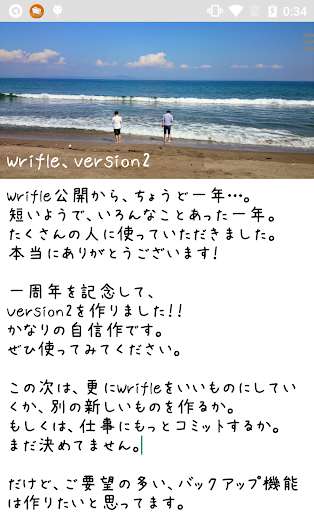 0:34
Wrifle、version2
Wrifle公開から、ちょうど一年…。
短いようで、いろんなことあった一年。
たくさんの人に使っていただきました。
本当にありがとうございます！
一周年を記念して、
version2を作りました！！
かなりの自信作です。
ぜひ使ってみてください。
この次は、更にWrifleをいいものにしてい
くか、別の新しいものを作るか。
もしくは、仕事にもっとコミットするか。
まだ決めてません。
だけど、ご要望の多い、バックアップ機能
は作りたいと思ってます。